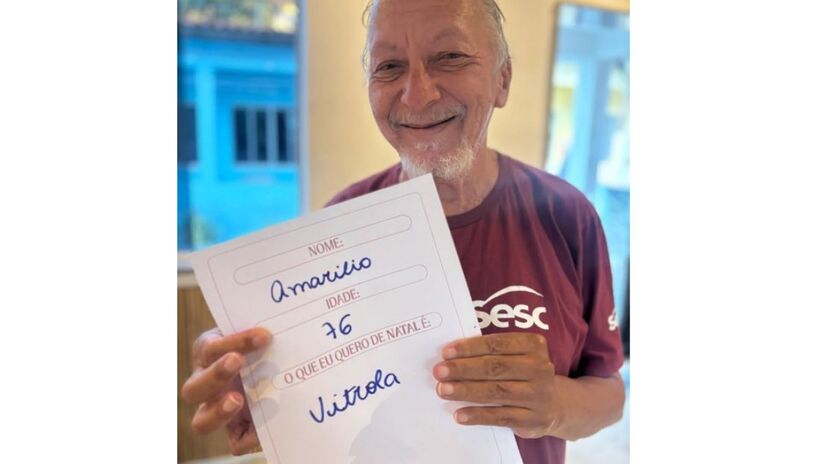 NOME:
Amarilio
IDADE:
76
O QUE EU QUERO DE NATAL É:
Vitrola
sesc